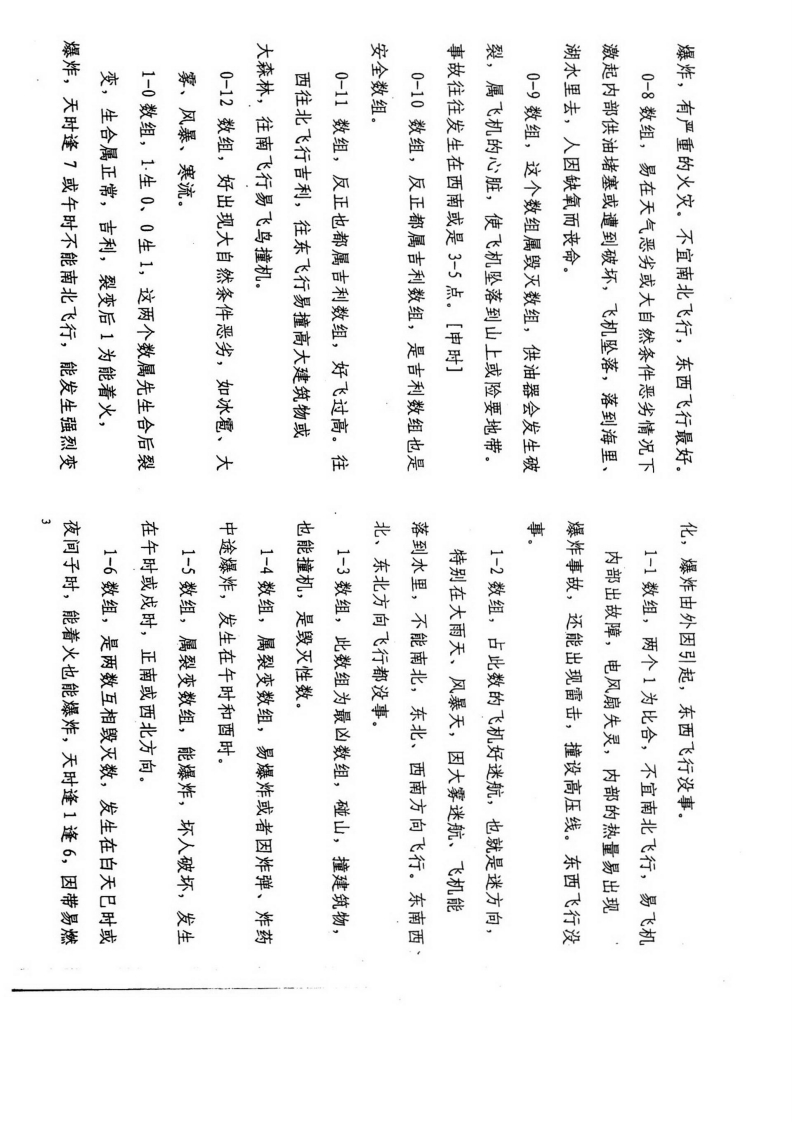 爆炸，有严重的火灾。不宜南北飞行，东西飞行最好。
0-8 数组，易在天气恶劣或大自然条件恶劣情况下
激起内部供油堵塞或遭到破坏，飞机坠落，落到海里、
湖水里去，人因缺氧而丧命。
0-9 数组，这个数组属毁灭数组，供油器会发生破
裂，属飞机的心脏，使飞机坠落到山上或险要地带。
事故往往发生在西南或是 3-5 点。[申时]
0-10 数组，反正都属吉利数组，是吉利数组也是
安全数组。
0-11 数组，反正也都属吉利数组，好飞过高。往
西往北飞行吉利，往东飞行易撞高大建筑物或
大森林，往南飞行易飞鸟撞机。
0-12 数组，好出现大自然条件恶劣，如冰雹、大
雾、风暴、寒流。
1-0 数组，1·生 0、0 生 1，这两个数属先生合后裂
变，生合属正常，吉利，裂变后 1 为能着火，
爆炸，天时逢 7 或午时不能南北飞行，能发生强烈变
化，爆炸由外因引起，东西飞行没事。
1-1 数组，两个 1 为比合，不宜南北飞行，易飞机
内部出故障，电风扇失灵，内部的热量易出现
爆炸事故，还能出现雷击，撞设高压线。东西飞行没
事。
1-2 数组，占此数的飞机好迷航，也就是迷方向，
特别在大雨天、风暴天，因大雾迷航、飞机能
落到水里，不能南北，东北、西南方向飞行。东南西、
北、东北方向飞行都没事。
1-3 数组，此数组为最凶数组，碰山，撞建筑物，
也能撞机，是毁灭性数。
1-4 数组，属裂变数组，易爆炸或者因炸弹、炸药
中途爆炸，发生在午时和酉时。
1-5 数组，属裂变数组，能爆炸，坏人破坏，发生
在午时或戌时，正南或西北方向。
1-6 数组，是两数互相毁灭数，发生在白天巳时或
夜间子时，能着火也能爆炸，天时逢 1 逢 6，因带易燃
3